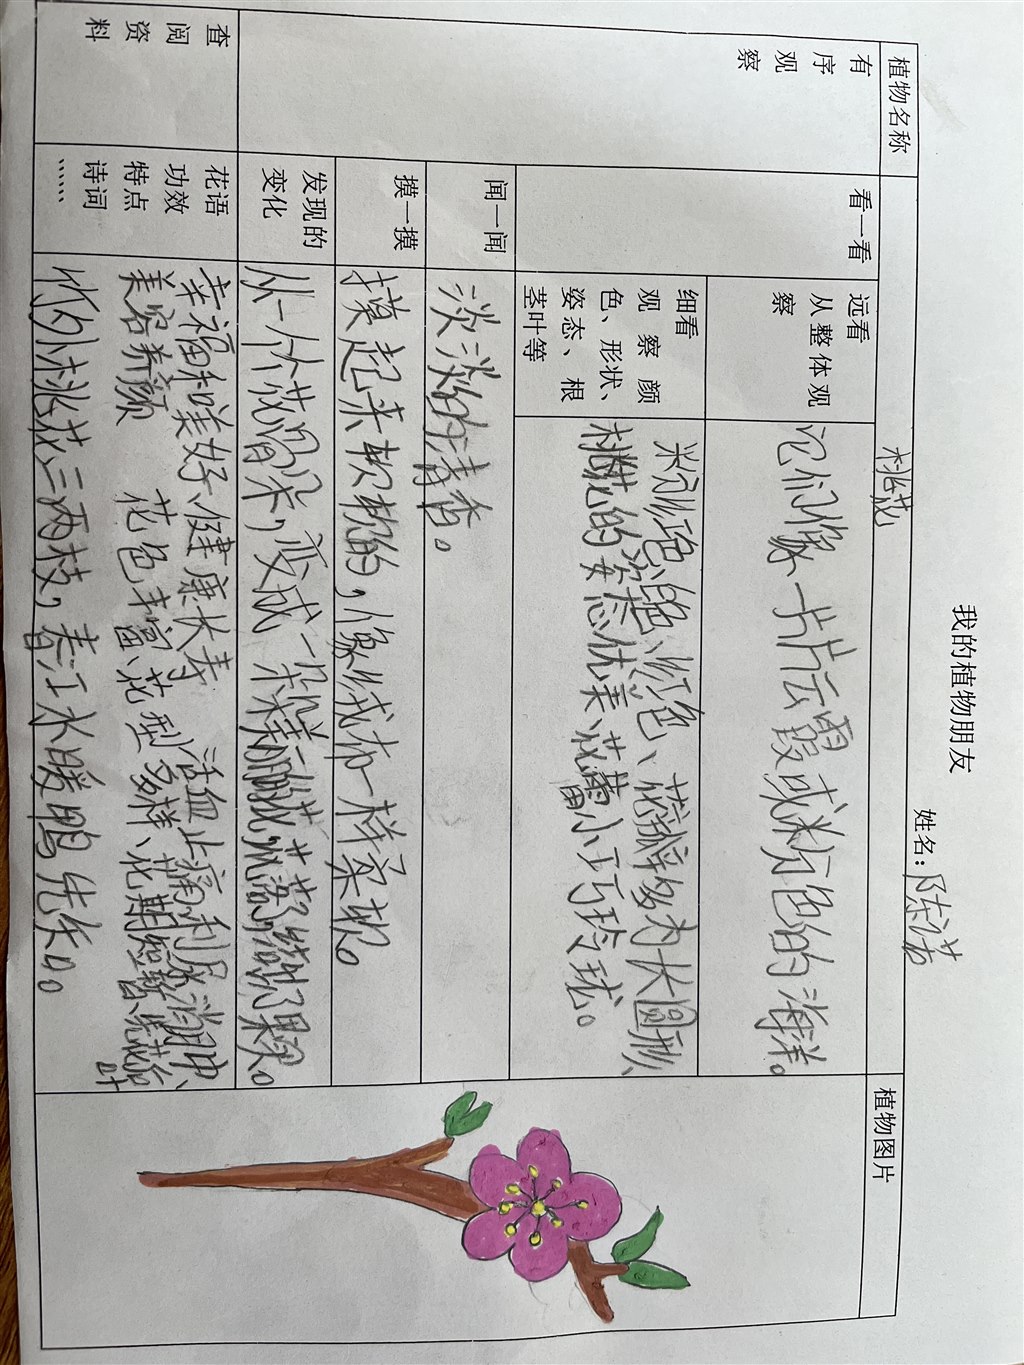 我的植物朋友
姓名：陈诺
植物名称
桃花
植物图片
有序观察
看一看
远看
从整体观察
它们像一片片云霞或粉色的海洋。
细看
观察颜色、形状、姿态、根茎叶等
粉红色、白色、深红色、花瓣多为长圆形、
桃花的姿态优美、花蕾小巧玲珑。
闻一闻
淡淡的清香。
摸一摸
摸起来软软的，像绒布一样柔软。
发现的变化
从一个个花骨朵，变成一朵朵美丽的花，花落了，结出了果实。
查阅资料
花语
功效
特点
诗词
……
幸福和美好、健康长寿 活血止痛、利尿消肿、
美容养颜 花色丰富、花型多样、花期短暂、先花后
叶
竹外桃花三两枝，春江水暖鸭先知。